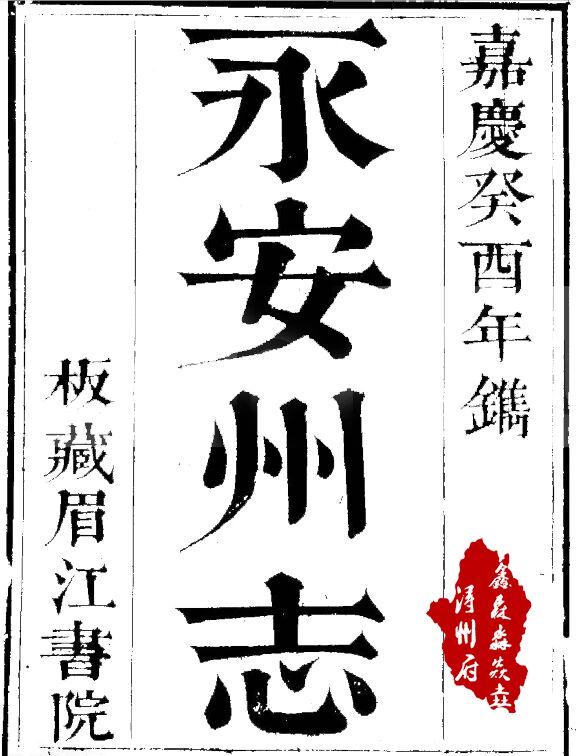 嘉慶癸酉年鐫
永安州志
板藏眉江書院
鑫森淼焱垚
潯州府